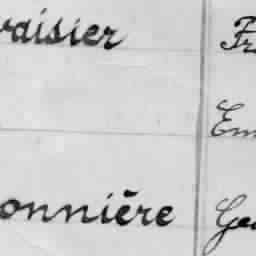 raisier Fr
Em
onnière Geo